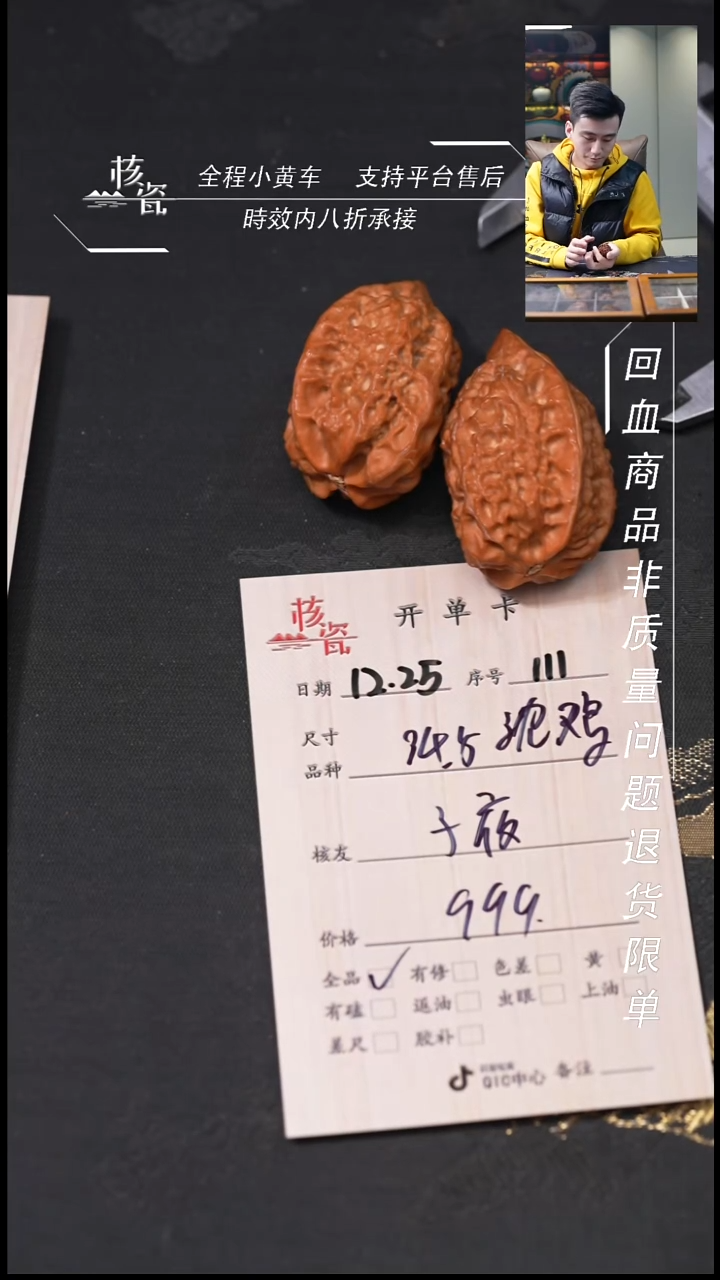 核瓷
全程小黄车 支持平台售后
時效内八折承接
回血商品非质量问题退货限单
核瓷
开单卡
日期 12.25 序号 111
尺寸
品种 34.5 鸡
核友 子夜
价格 999.
全品 ✓ 有修 色差 黄
有磕 返油 虫眼 上油
差尺 胶补
QIC中心 备注